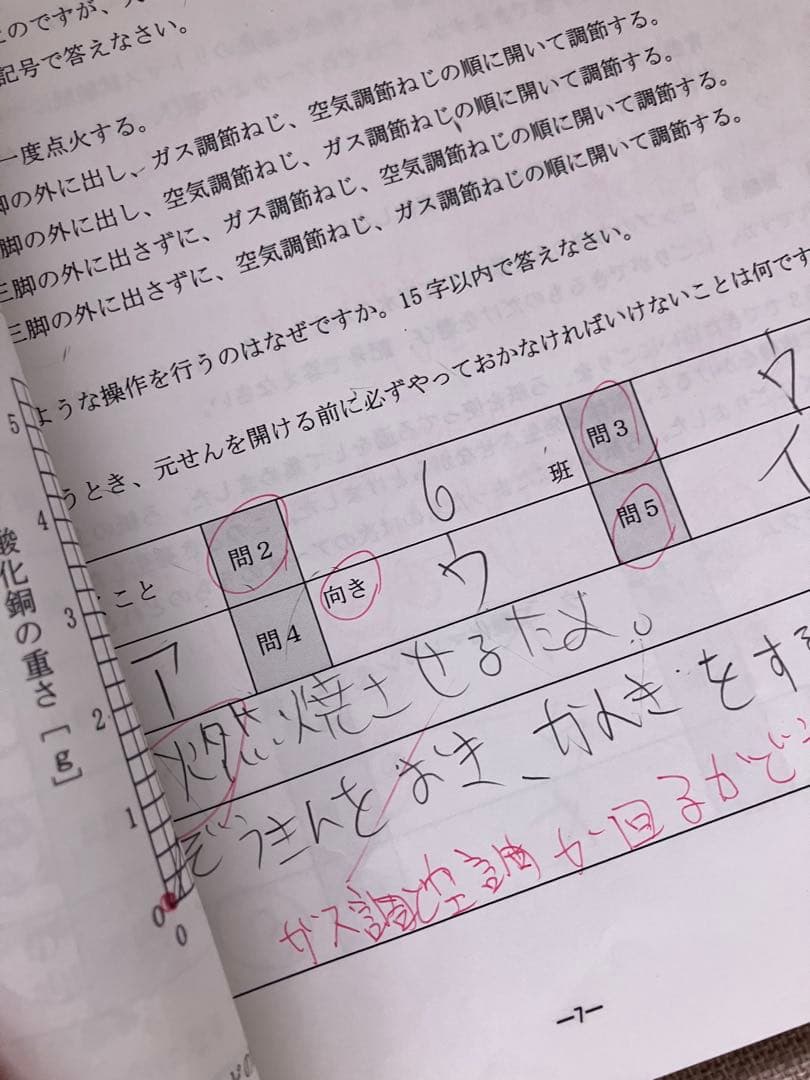 このですが、
記号で答えなさい。
一度点火する。
脚の外に出し、ガス調節ねじ、空気調節ねじの順に開いて調節する。
脚の外に出し、空気調節ねじ、ガス調節ねじの順に開いて調節する。
三脚の外に出さずに、ガス調節ねじ、空気調節ねじの順に開いて調節する。
三脚の外に出さずに、空気調節ねじ、ガス調節ねじの順に開いて調節する。
ような操作を行うのはなぜですか。15字以内で答えなさい。
うとき、元せんを開ける前に必ずやっておかなければいけないことは何です
こと 問2 6 班 問3 ウ
ア 問4 向き ウ 問5 イ
燃焼させるため。
ぞうきんをおき、かんきをする
ガス調と空調が回るかど
5
4
3
2
1
0
0
酸化銅の重さ[g]
―7―